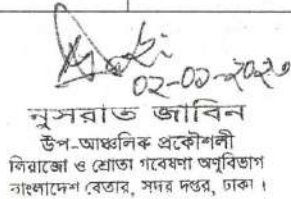 ০২-০১-২০২৩
নুসরাত জাবিন
উপ-আঞ্চলিক প্রকৌশলী
লিরাজো ও শ্রোতা গবেষণা অণুবিভাগ
বাংলাদেশ বেতার, সদর দপ্তর, ঢাকা।